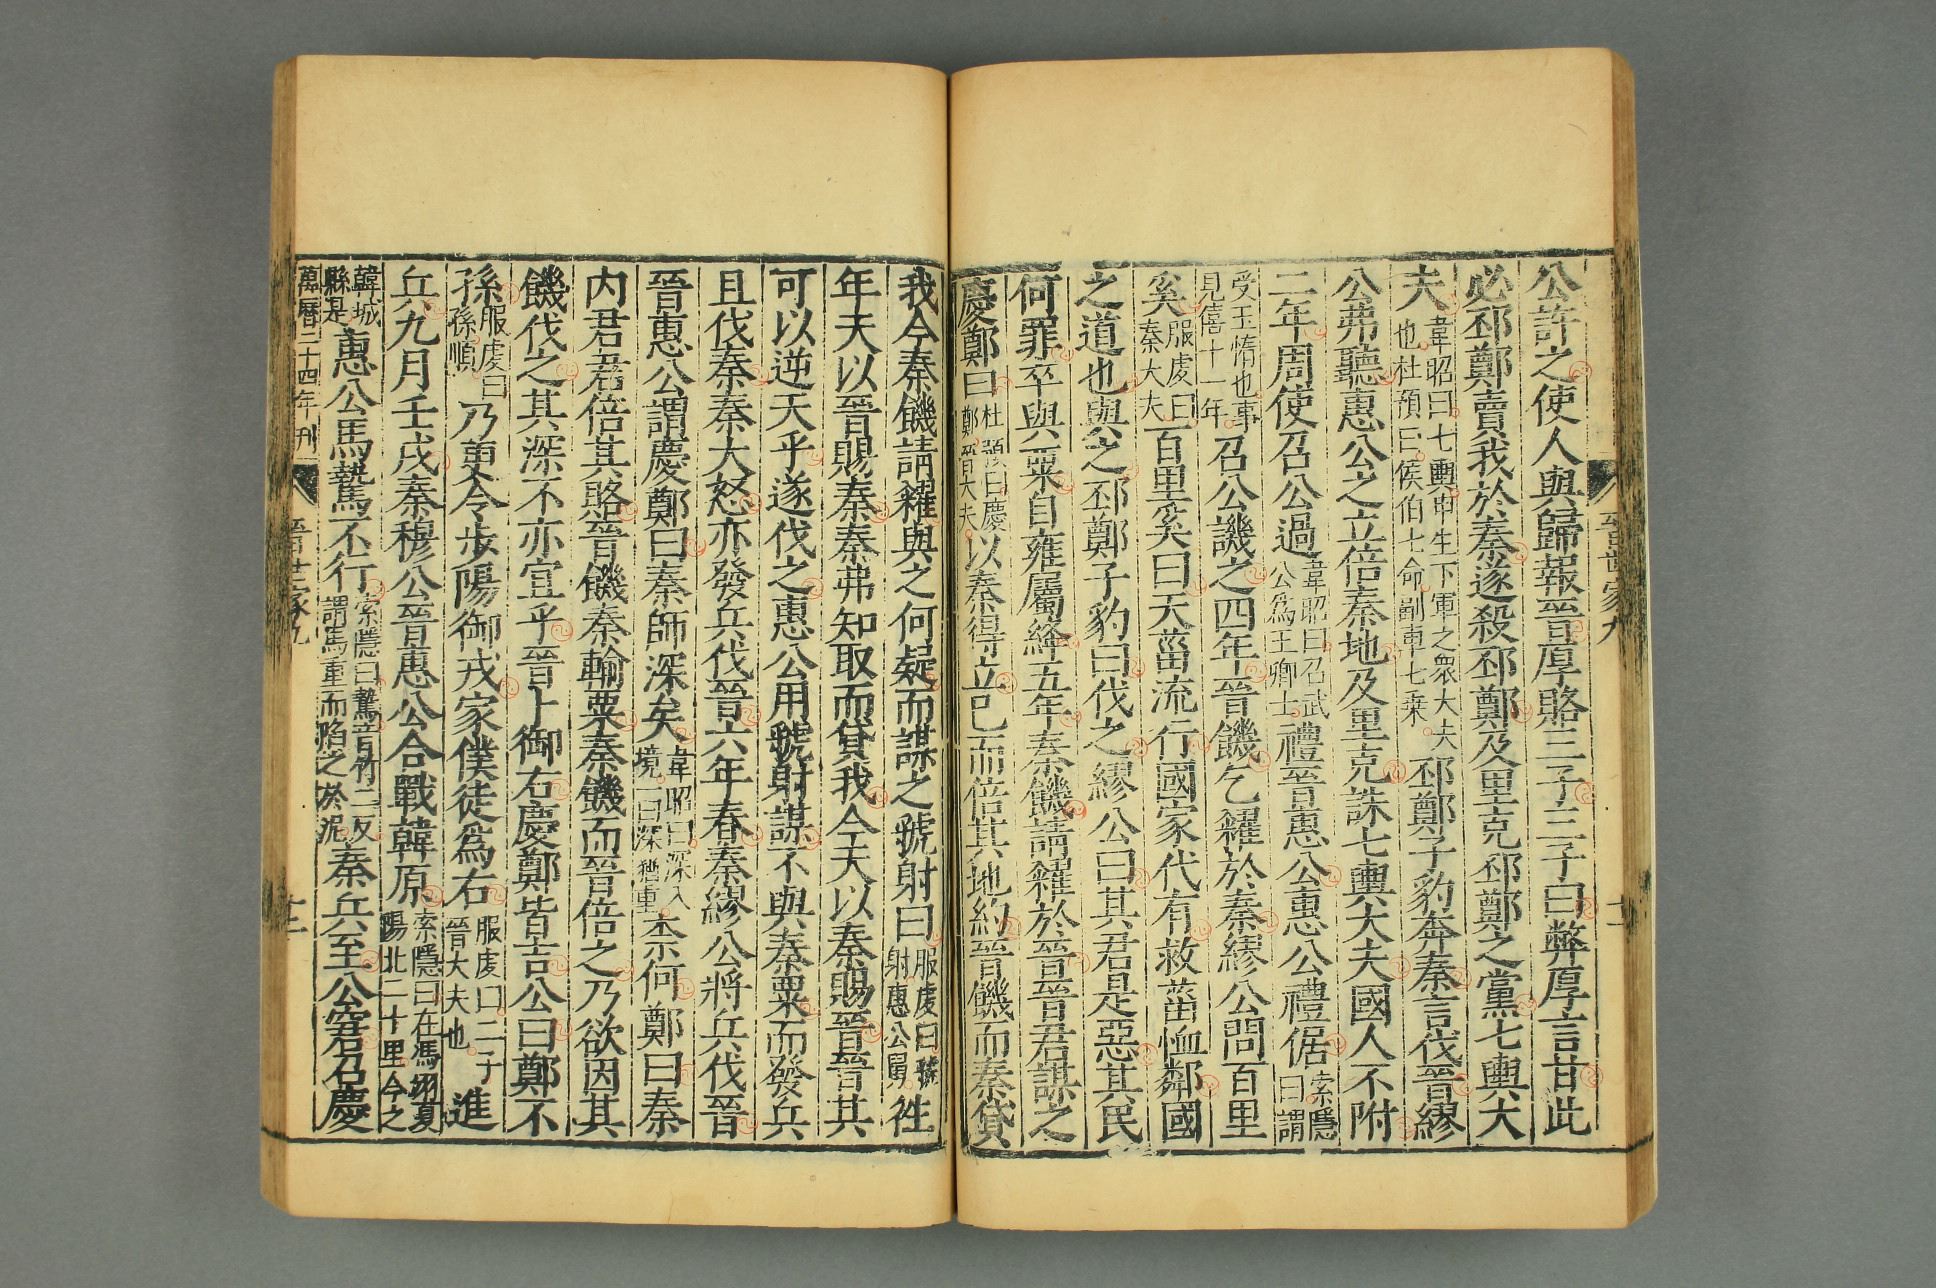 晉世家九
十一
公許之使人與歸報晉厚賂三子三子曰弊厚言甘此
必邳鄭賣我於秦遂殺邳鄭及里克邳鄭之黨七輿大
夫韋昭曰七輿申生下軍之衆大夫也杜預曰侯伯七命副車七乗邳鄭子豹奔秦言伐晉繆
公弗聽惠公之立倍秦地及里克誅七輿大夫國人不附
二年周使召公過韋昭曰召武公爲王卿士禮晉惠公惠公禮倨索隱曰謂
受玉惰也事見僖十一年召公譏之四年晉饑乞糴於秦繆公問百里
奚服虔曰秦大夫百里奚曰天菑流行國家代有救菑恤鄰國
之道也與之邳鄭子豹曰伐之繆公曰其君是惡其民
何罪卒與粟自雍屬絳五年秦饑請糴於晉晉君謀之
慶鄭曰杜預曰慶鄭晉大夫以秦得立已而倍其地約晉饑而秦貸
我今秦饑請糴與之何疑而謀之虢射曰服虔曰虢射惠公舅徃
年天以晉賜秦秦弗知取而貸我今天以秦賜晉晉其
可以逆天乎遂伐之惠公用虢射謀不與秦粟而發兵
且伐秦秦大怒亦發兵伐晉六年春秦繆公將兵伐晉
晉惠公謂慶鄭曰秦師深矣韋昭曰深入境一曰深猶重柰何鄭曰秦
内君君倍其賂晉饑秦輸粟秦饑而晉倍之乃欲因其
饑伐之其深不亦宜乎晉卜御右慶鄭皆吉公曰鄭不
孫服虔曰孫順乃更令歩陽御戎家僕徒爲右服虔曰二子晉大夫也進
兵九月壬戌秦穆公晉惠公合戰韓原索隱曰在馮翊夏陽北二十里今之
韓城縣是惠公馬騺不行索隱曰騺音竹二反謂馬重而陷之於泥秦兵至公窘召慶
萬曆二十四年刊
晉世家九
十二